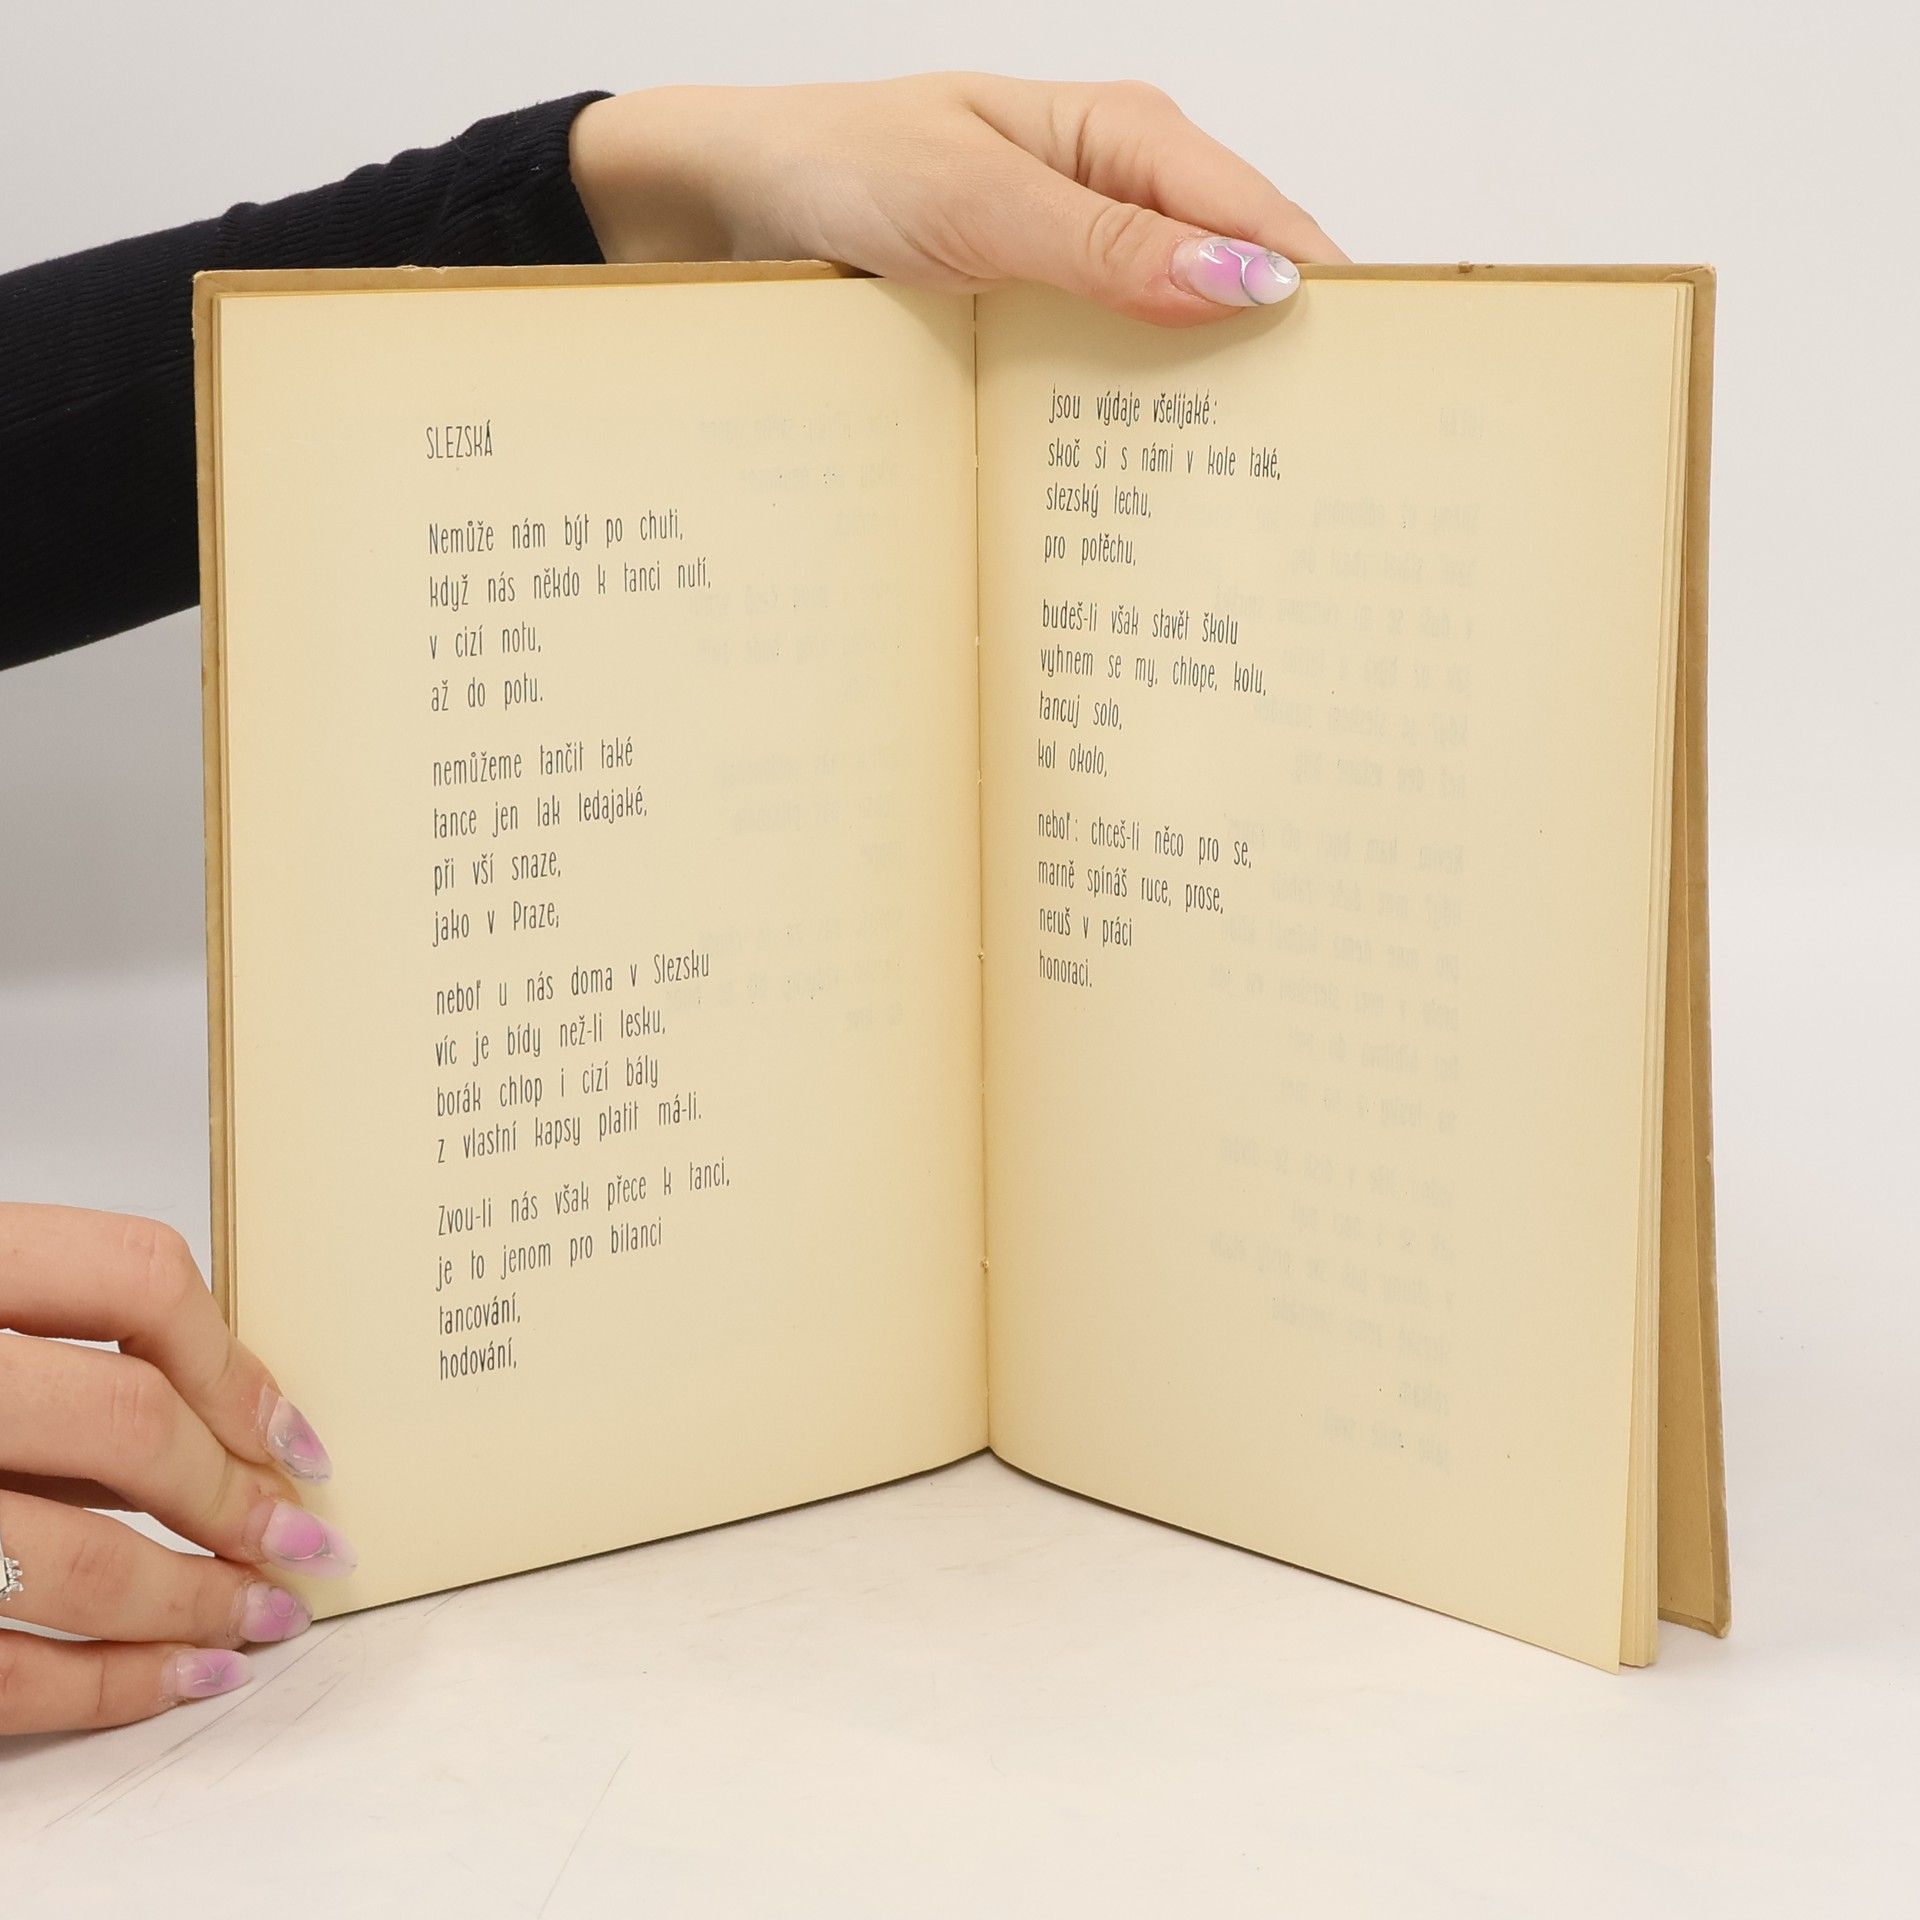 SLEZSKÁ
Nemůže nám být po chuti,
když nás někdo k tanci nutí,
v cizí notu,
až do potu.
nemůžeme tančit také
tance jen tak ledajaké,
při vší snaze,
jako v Praze;
neboť u nás doma v Slezsku
víc je bídy než-li lesku,
borák chlop i cizí bály
z vlastní kapsy platit má-li.
Zvou-li nás však přece k tanci,
je to jenom pro bilanci
tancování,
hodování,
jsou výdaje všelijaké:
skoč si s námi v kole také,
slezský lechu,
pro potěchu,
budeš-li však stavět školu
vyhnem se my, chlope, kolu,
tancuj solo,
kol okolo,
neboť: chceš-li něco pro se,
marně spínáš ruce, prose,
neruš v práci
honoraci.